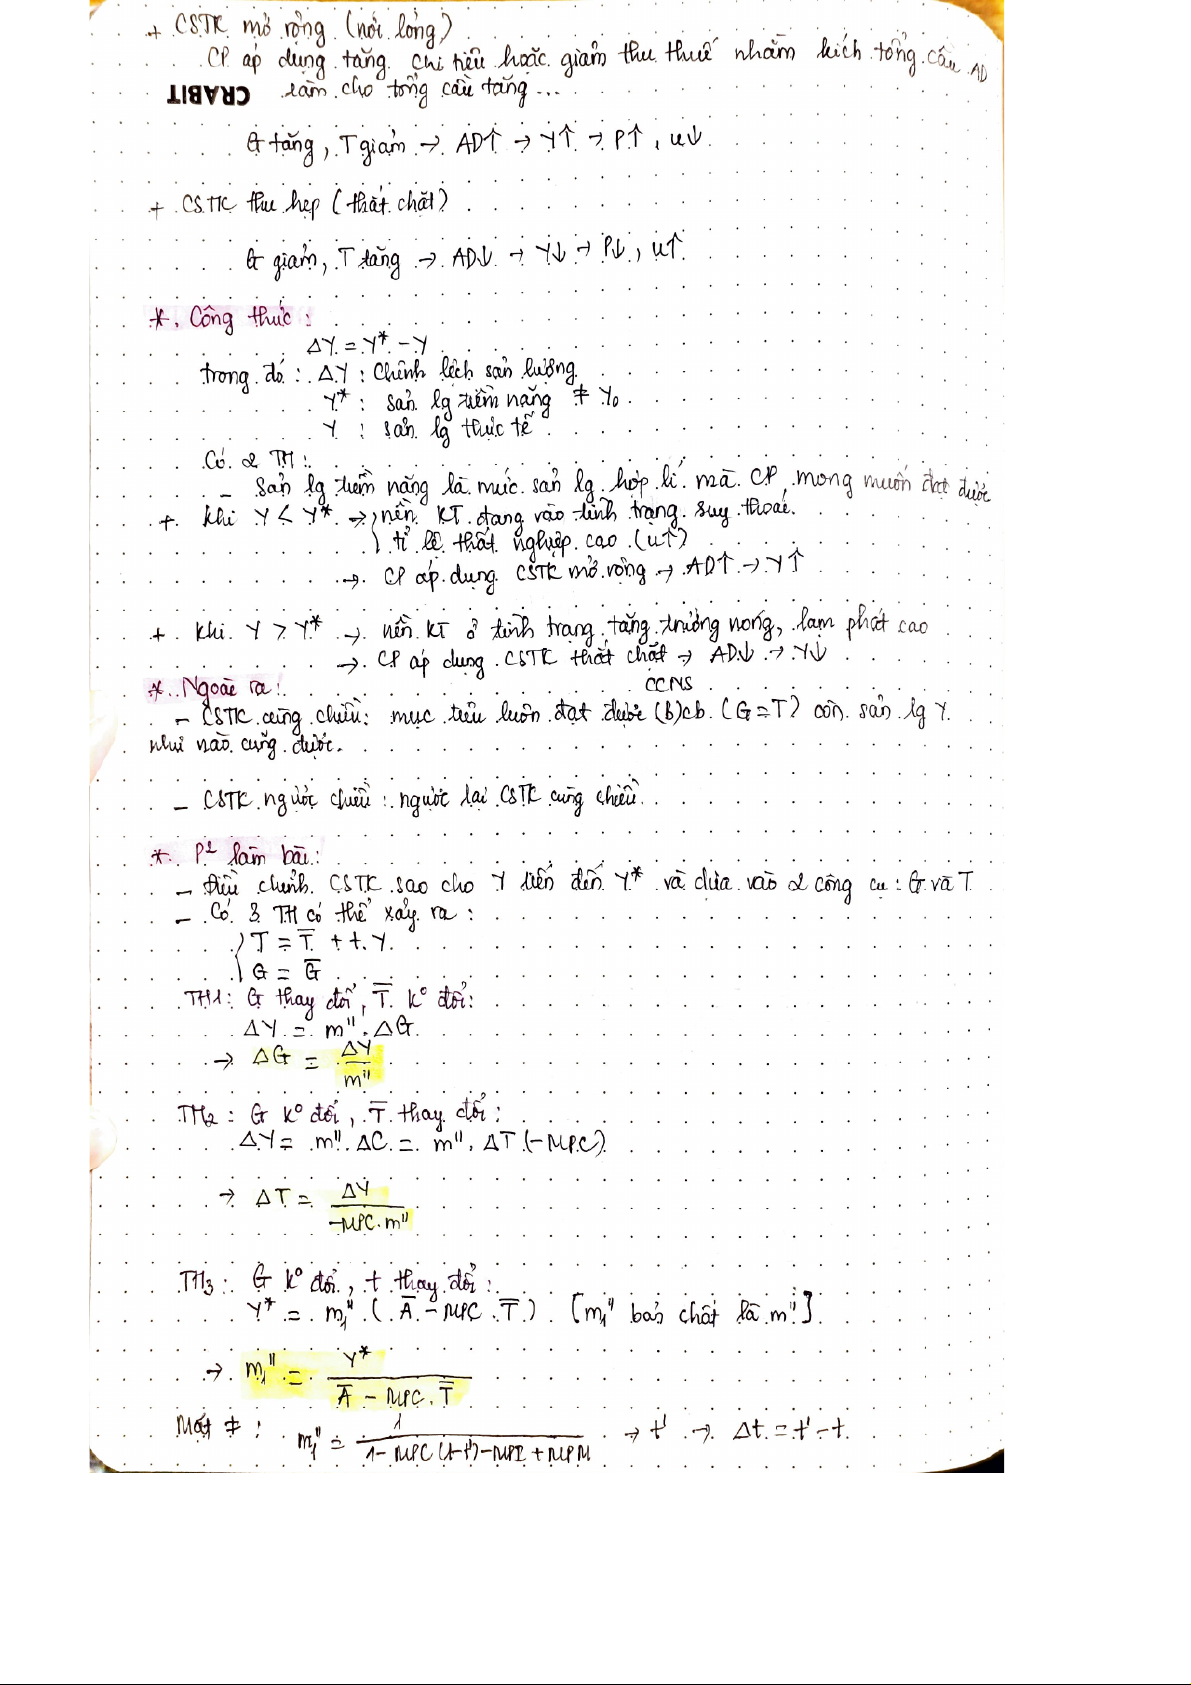 + CSTK mở rộng (nới lỏng)
CP áp dụng tăng chi tiêu hoặc giảm thu thuế nhằm kích tổng cầu AD
CRABIT làm cho tổng cầu tăng...
G tăng, T giảm → AD↑ → Y↑ → P↑, u↓
+ CSTK thu hẹp (thắt chặt)
G giảm, T tăng → AD↓ → Y↓ → P↓, u↑
*. Công thức:
ΔY = Y* - Y
trong đó: ΔY: Chênh lệch sản lượng
Y*: sản lg tiềm năng ≠ Y₀
Y : sản lg thực tế
Có 2 TH:
- Sản lg tiềm năng là mức sản lg hợp lí mà CP mong muốn đạt được
+ khi Y < Y* → nền KT đang vào tình trạng suy thoái
tỉ lệ thất nghiệp cao (u↑)
→ CP áp dụng CSTK mở rộng → AD↑ → Y↑
+ khi Y > Y* → nền KT ở tình trạng tăng trưởng nóng, lạm phát cao
→ CP áp dụng CSTK thắt chặt → AD↓ → Y↓
*. Ngoài ra:
CCNS
- CSTK cùng chiều: mục tiêu luôn đạt được (b)cb (G=T) còn sản lg Y
như nào cũng được.
- CSTK ngược chiều: ngược lại CSTK cùng chiều
*. P² làm bài:
- Điều chỉnh CSTK sao cho Y tiến đến Y* và dựa vào 2 công cụ: G và T
- Có 3 TH có thể xảy ra:
T = T̅ + t.Y
G = G̅
TH1: G thay đổi, T̅ k° đổi:
ΔY = m".ΔG
→ ΔG = ΔY / m"
TH2: G k° đổi, T̅ thay đổi:
ΔY = m".ΔC = m".ΔT(-MPC)
→ ΔT = ΔY / -MPC.m"
TH3: G k° đổi, t thay đổi:
Y* = m₁".(A̅ - MPC.T̅) [m₁" bản chất là m"]
→ m₁" = Y* / A̅ - MPC.T̅
Mặt ≠: m₁" = 1 / 1-MPC(1-t')-MPI+MPM → t' → Δt = t'-t